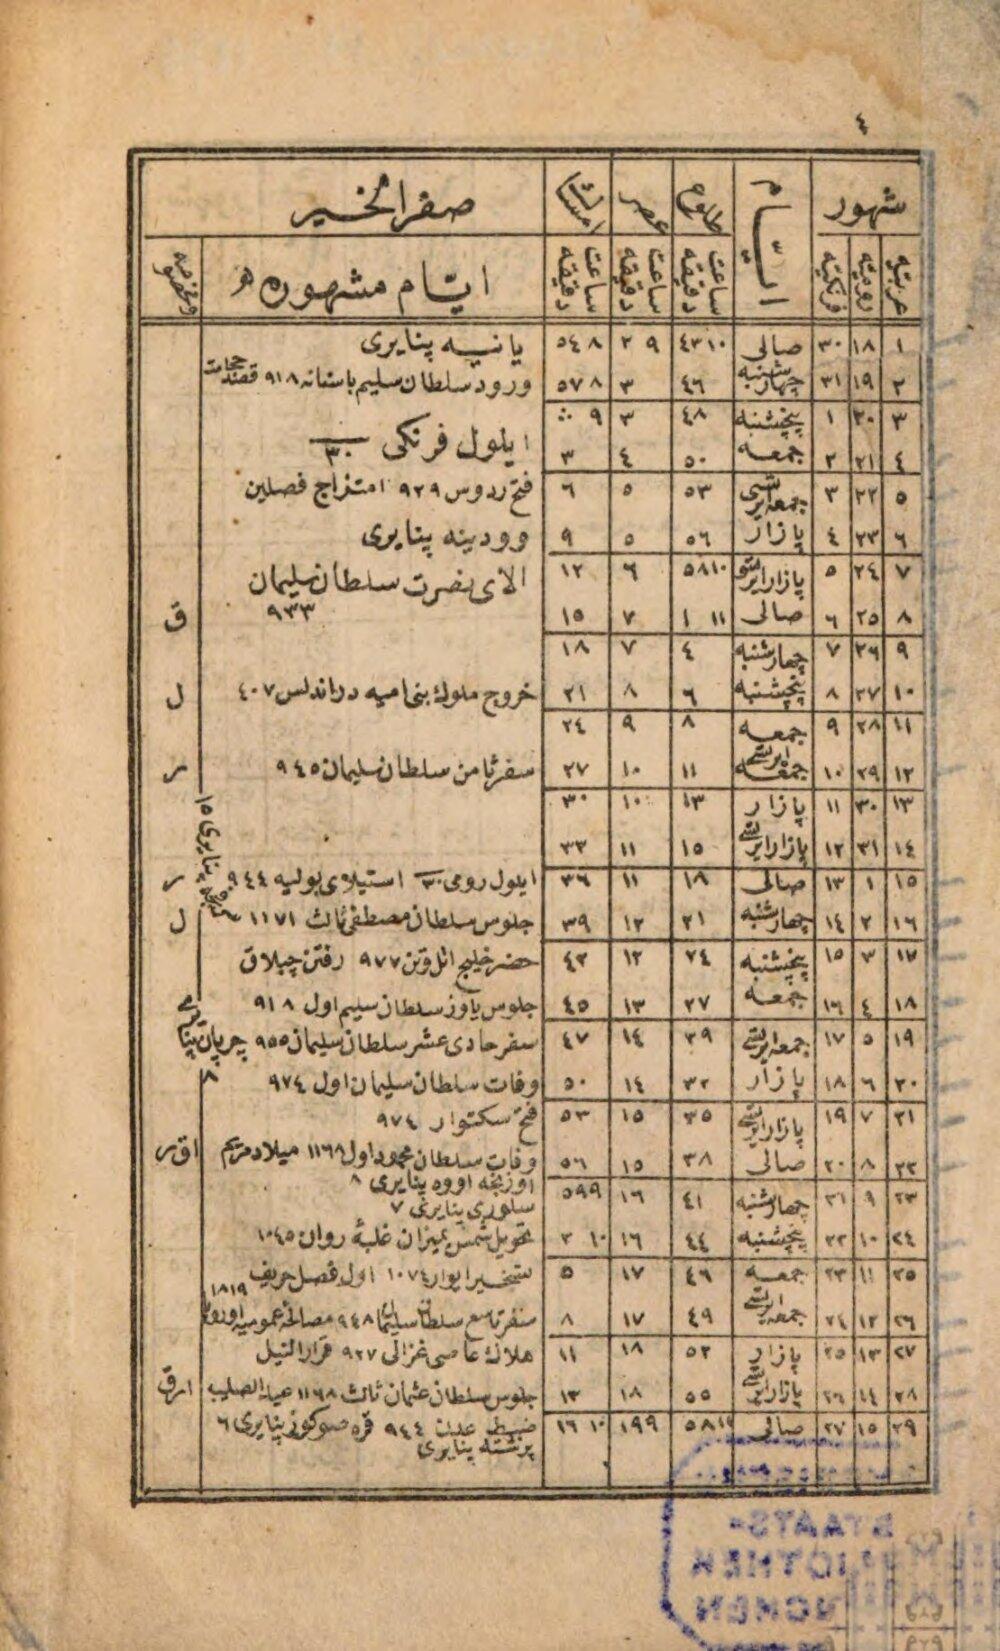 ٤
شهور ايّام طلوع عصر امساك صفر الخير
عربيّه روميّه فرنكيّه ساعت دقيقه ساعت دقيقه ساعت دقيقه ايّام مشهوره
١ ١٨ ٣٠ صالى ١٠ ٤٣ ٩ ٢ ٨ ٥٤ يانيه پنايرى
٢ ١٩ ٣١ چهارشنبه ٤٦ ٣ ٨ ٥٧ ورود سلطان سليم باستانه ٩١٨ قصد حجامت
٣ ٢٠ ١ پنجشنبه ٤٨ ٣ ٩
٤ ٢١ ٢ جمعه ٥٠ ٤ ٣ ايلول فرنكى ٣٠
٥ ٢٢ ٣ جمعه ايرتسى ٥٣ ٥ ٦ فتح ردوس ٩٢٩ امتزاج فصلين
٦ ٢٣ ٤ پازار ٥٦ ٥ ٩ وودينه پنايرى
٧ ٢٤ ٥ پازار ايرتسى ١٠ ٥٨ ٦ ١٢ الاى نصرت سلطان سليمان
٨ ٢٥ ٦ صالى ١١ ١ ٧ ١٥ ٩٣٣ ق
٩ ٢٦ ٧ چهارشنبه ٤ ٧ ١٨
١٠ ٢٧ ٨ پنجشنبه ٦ ٨ ٢١ خروج ملوك بنى اميه در اندلس ٤٠٧ ل
١١ ٢٨ ٩ جمعه ٨ ٩ ٢٤
١٢ ٢٩ ١٠ جمعه ايرتسى ١١ ١٠ ٢٧ سفر ثامن سلطان سليمان ٩٤٥ ر
١٣ ٣٠ ١١ پازار ١٣ ١٠ ٣٠
١٤ ٣١ ١٢ پازار ايرتسى ١٥ ١١ ٣٣
١٥ ١ ١٣ صالى ١٨ ١١ ٣٦ ايلول رومى ٣٠ استيلاى پوليه ٩٤٤ ر
١٦ ٢ ١٤ چهارشنبه ٢١ ١٢ ٣٩ جلوس سلطان مصطفى ثالث ١١٧١ ل
پنايرى ١٥
١٧ ٣ ١٥ پنجشنبه ٢٤ ١٢ ٤٢ حضر خليج اتل وتن ٩٧٧ رفتن چيلاق
١٨ ٤ ١٦ جمعه ٢٧ ١٣ ٤٥ جلوس ياوز سلطان سليم اول ٩١٨
١٩ ٥ ١٧ جمعه ايرتسى ٢٩ ١٤ ٤٧ سفر حادى عشر سلطان سليمان ٩٥٥ چرپان پنايرى ٨
٢٠ ٦ ١٨ پازار ٣٢ ١٤ ٥٠ وفات سلطان سليمان اول ٩٧٤
٢١ ٧ ١٩ پازار ايرتسى ٣٥ ١٥ ٥٣ فتح سكتوار ٩٧٤
٢٢ ٨ ٢٠ صالى ٣٨ ١٥ ٥٦ وفات سلطان محمود اول ١١٦٨ ميلاد مريم ا ق ر
اوزنجه اووه پنايرى ٨
٢٣ ٩ ٢١ چهارشنبه ٤١ ١٦ ٩ ٥٩ سلورى پنايرى ٧
٢٤ ١٠ ٢٢ پنجشنبه ٤٤ ١٦ ١٠ ٢ تحويل شمس بميزان غلبهٔ روان ١٠٤٥
٢٥ ١١ ٢٣ جمعه ٤٦ ١٧ ٥ تسخير ايوار ١٠٧٤ اول فصل خريف
٢٦ ١٢ ٢٤ جمعه ايرتسى ٤٩ ١٧ ٨ سفر تاسع سلطان سليمان ٩٤٨ مصالحهٔ عموميهٔ اوروپا ١٨١٩
٢٧ ١٣ ٢٥ پازار ٥٢ ١٨ ١١ هلاك عاصى غزالى ٩٢٧ قرار النيل
٢٨ ١٤ ٢٦ پازار ايرتسى ٥٥ ١٨ ١٣ جلوس سلطان عثمان ثالث ١١٦٨ عيد الصليب ا ر ق
٢٩ ١٥ ٢٧ صالى ١٠ ٥٨ ٩ ١٩ ١٠ ١٦ ضبط عدن ٩٤٤ قره صو كوز پنايرى ٦
پرشته پنايرى
STAATS-
BREMEN